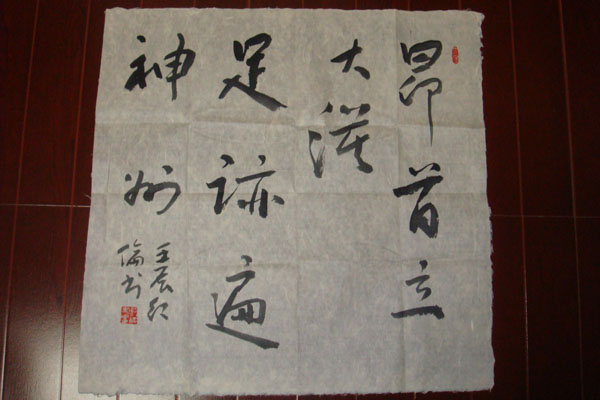 昂首立
大漠
足跡遍
神州
壬辰
倫书